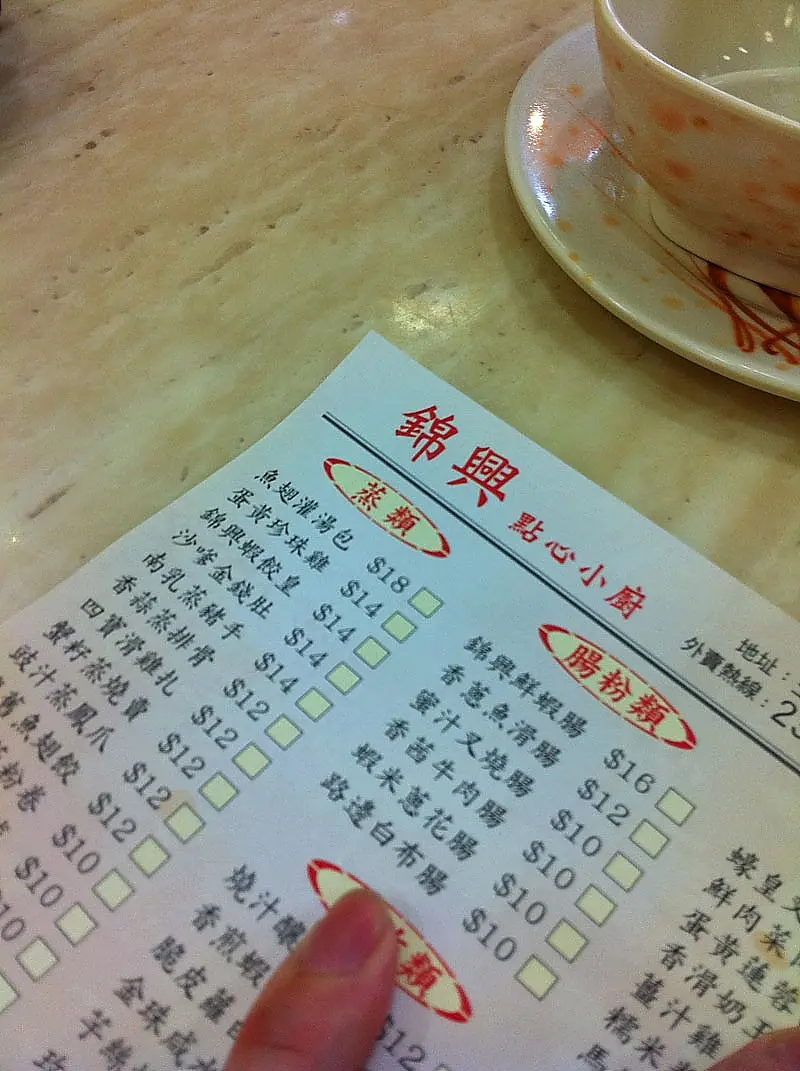 錦興 點心小廚
地址：
外賣熱線：23
蒸類
魚翅灌湯包 $18
蛋黃珍珠雞 $14
錦興蝦餃皇 $14
沙嗲金錢肚 $14
南乳蒸豬手 $14
香蒜蒸排骨 $12
四寶滑雞扎 $12
蟹籽蒸燒賣 $12
豉汁蒸鳳爪 $12
魚翅餃 $12
粉卷 $10
$10
$10
腸粉類
錦興鮮蝦腸 $16
香蔥魚滑腸 $12
蜜汁叉燒腸 $10
香茜牛肉腸 $10
蝦米蔥花腸 $10
路邊白布腸 $10
類
燒汁釀
香煎蝦
脆皮蘿
金珠咸
芋絲
珍
$12
蠔皇叉
鮮肉菜
蛋黃蓮蓉
香滑奶王
薑汁雞
糯米
馬